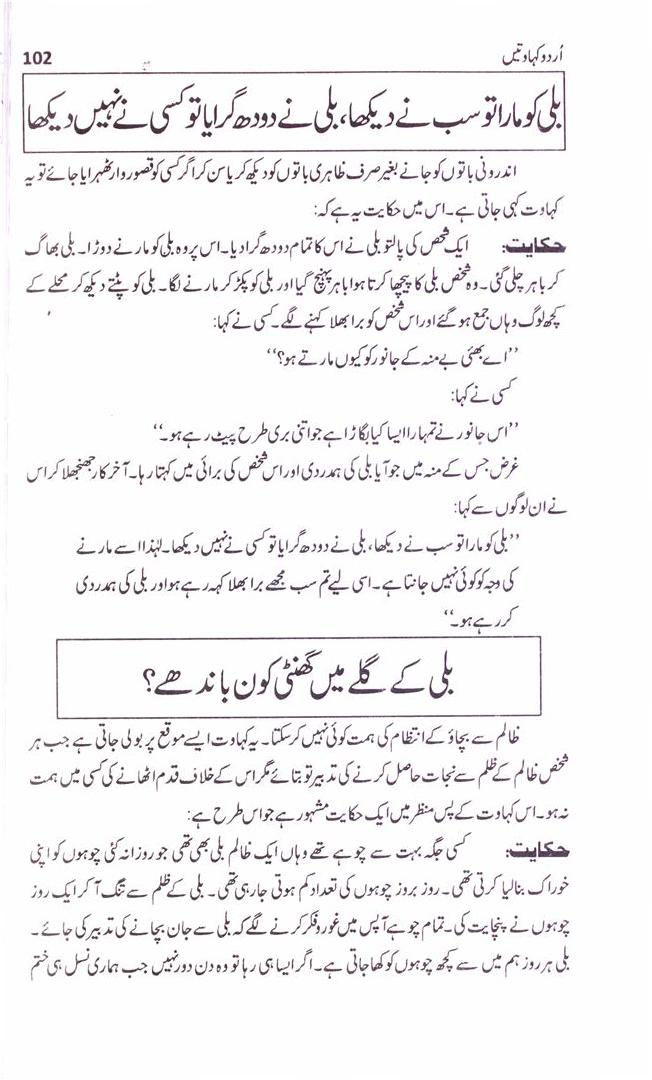 اُردو کہاوتیں 102
بلی کو مارا تو سب نے دیکھا، بلی نے دودھ گرایا تو کسی نے نہیں دیکھا
اندرونی باتوں کو جانے بغیر صرف ظاہری باتوں کو دیکھ کر یا سن کر اگر کسی کو قصوروار ٹھہرایا جائے تو یہ
کہاوت کہی جاتی ہے۔ اس میں حکایت یہ ہے کہ:
حکایت: ایک شخص کی پالتو بلی نے اس کا تمام دودھ گرا دیا۔ اس پر وہ بلی کو مارنے دوڑا۔ بلی بھاگ
کر باہر چلی گئی۔ وہ شخص بلی کا پیچھا کرتا ہوا باہر پہنچ گیا اور بلی کو پکڑ کر مارنے لگا۔ بلی کو پٹتے دیکھ کر محلے کے
کچھ لوگ وہاں جمع ہو گئے اور اس شخص کو برا بھلا کہنے لگے۔ کسی نے کہا:
’’اے بھئی بے منہ کے جانور کو کیوں مارتے ہو؟‘‘
کسی نے کہا:
’’اس جانور نے تمہارا ایسا کیا بگاڑا ہے جو اتنی بری طرح پیٹ رہے ہو۔‘‘
غرض جس کے منہ میں جو آیا بلی کی ہمدردی اور اس شخص کی برائی میں کہتا رہا۔ آخر کار جھنجھلا کر اس
نے ان لوگوں سے کہا:
’’بلی کو مارا تو سب نے دیکھا، بلی نے دودھ گرایا تو کسی نے نہیں دیکھا۔ لہٰذا اسے مارنے
کی وجہ کو کوئی نہیں جانتا ہے۔ اسی لیے تم سب مجھے برا بھلا کہہ رہے ہو اور بلی کی ہمدردی
کر رہے ہو۔‘‘
بلی کے گلے میں گھنٹی کون باندھے؟
ظالم سے بچاؤ کے انتظام کی ہمت کوئی نہیں کر سکتا۔ یہ کہاوت ایسے موقع پر بولی جاتی ہے جب ہر
شخص ظالم کے ظلم سے نجات حاصل کرنے کی تدبیر تو بتائے مگر اس کے خلاف قدم اٹھانے کی کسی میں ہمت
نہ ہو۔ اس کہاوت کے پس منظر میں ایک حکایت مشہور ہے جو اس طرح ہے:
حکایت: کسی جگہ بہت سے چوہے تھے وہاں ایک ظالم بلی بھی تھی جو روزانہ کئی چوہوں کو اپنی
خوراک بنا لیا کرتی تھی۔ روز بروز چوہوں کی تعداد کم ہوتی جا رہی تھی۔ بلی کے ظلم سے تنگ آ کر ایک روز
چوہوں نے پنچایت کی۔ تمام چوہے آپس میں غور و فکر کرنے لگے کہ بلی سے جان بچانے کی تدبیر کی جائے۔
بلی ہر روز ہم میں سے کچھ چوہوں کو کھا جاتی ہے۔ اگر ایسا ہی رہا تو وہ دن دور نہیں جب ہماری نسل ہی ختم